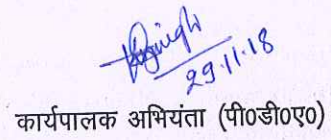 29.11.18
कार्यपालक अभियंता (पी0डी0ए0)